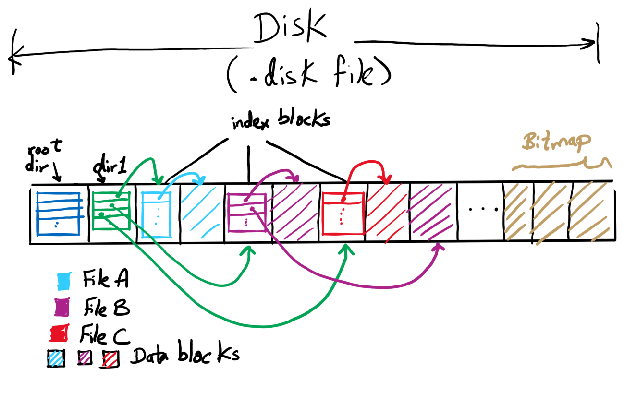 Disk
(.disk file)
index blocks
root
dir
dir1
Bitmap
...
File A
File B
File C
Data blocks